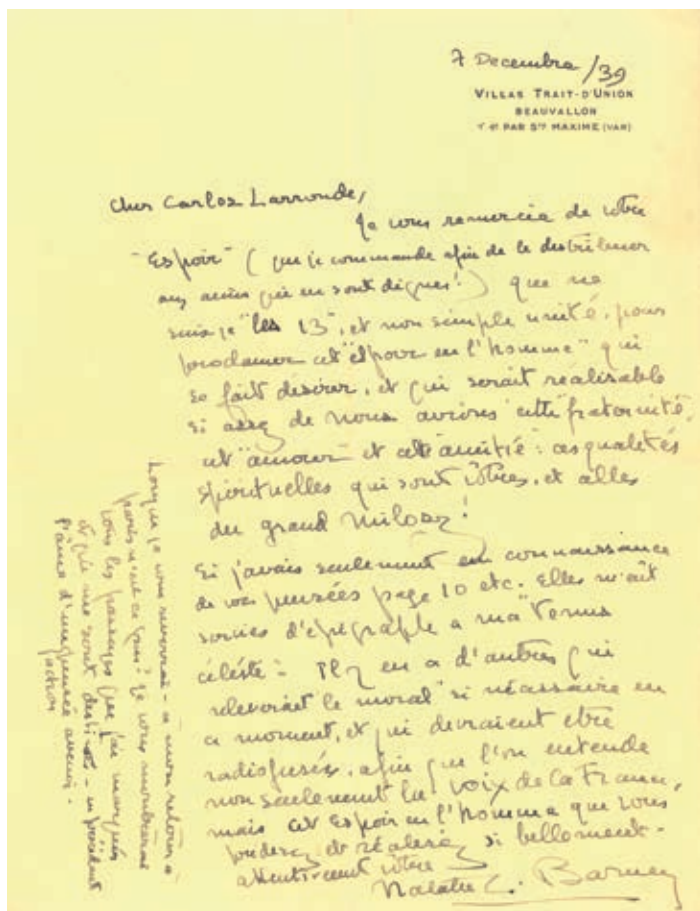 7 Decembre /39
VILLAS TRAIT-D'UNION
BEAUVALLON
PAR STE MAXIME (VAR)
Cher Carlos Larronde,
Je vous remercie de votre
"Espoir" (que je commande afin de le distribuer
aux amis qui en sont dignes!) que ne
suis je "les 13", et non simple unité, pour
proclamer cet "espoir en l'homme" qui
se fait désirer, et qui serait réalisable
si assez de nous avions cette fraternité,
cet "amour" et cette amitié: ces qualités
spirituelles qui sont vôtres, et celles
du grand Milosz!
Si j'avais seulement eu connaissance
de vos pensées page 10 etc. Elles m'ait
servies d'épigraphe a ma "Venus
céleste" - Il y en a d'autres qui
releverait le moral si nécessaire en
ce moment, et qui devraient etre
radiofusés, afin que l'on entende
non seulement la voix de la France,
mais cet Espoir en l'homme que vous
et réalisez si bellement -
attentivement vôtre
Natalie C. Barney
Lorsque je vous reverrai - a mon retour a
paris n'est ce pas? je vous montrerai
tous les passages que j'ai marqués
et qui me sont - en précédant
l'ame d'une avenir -